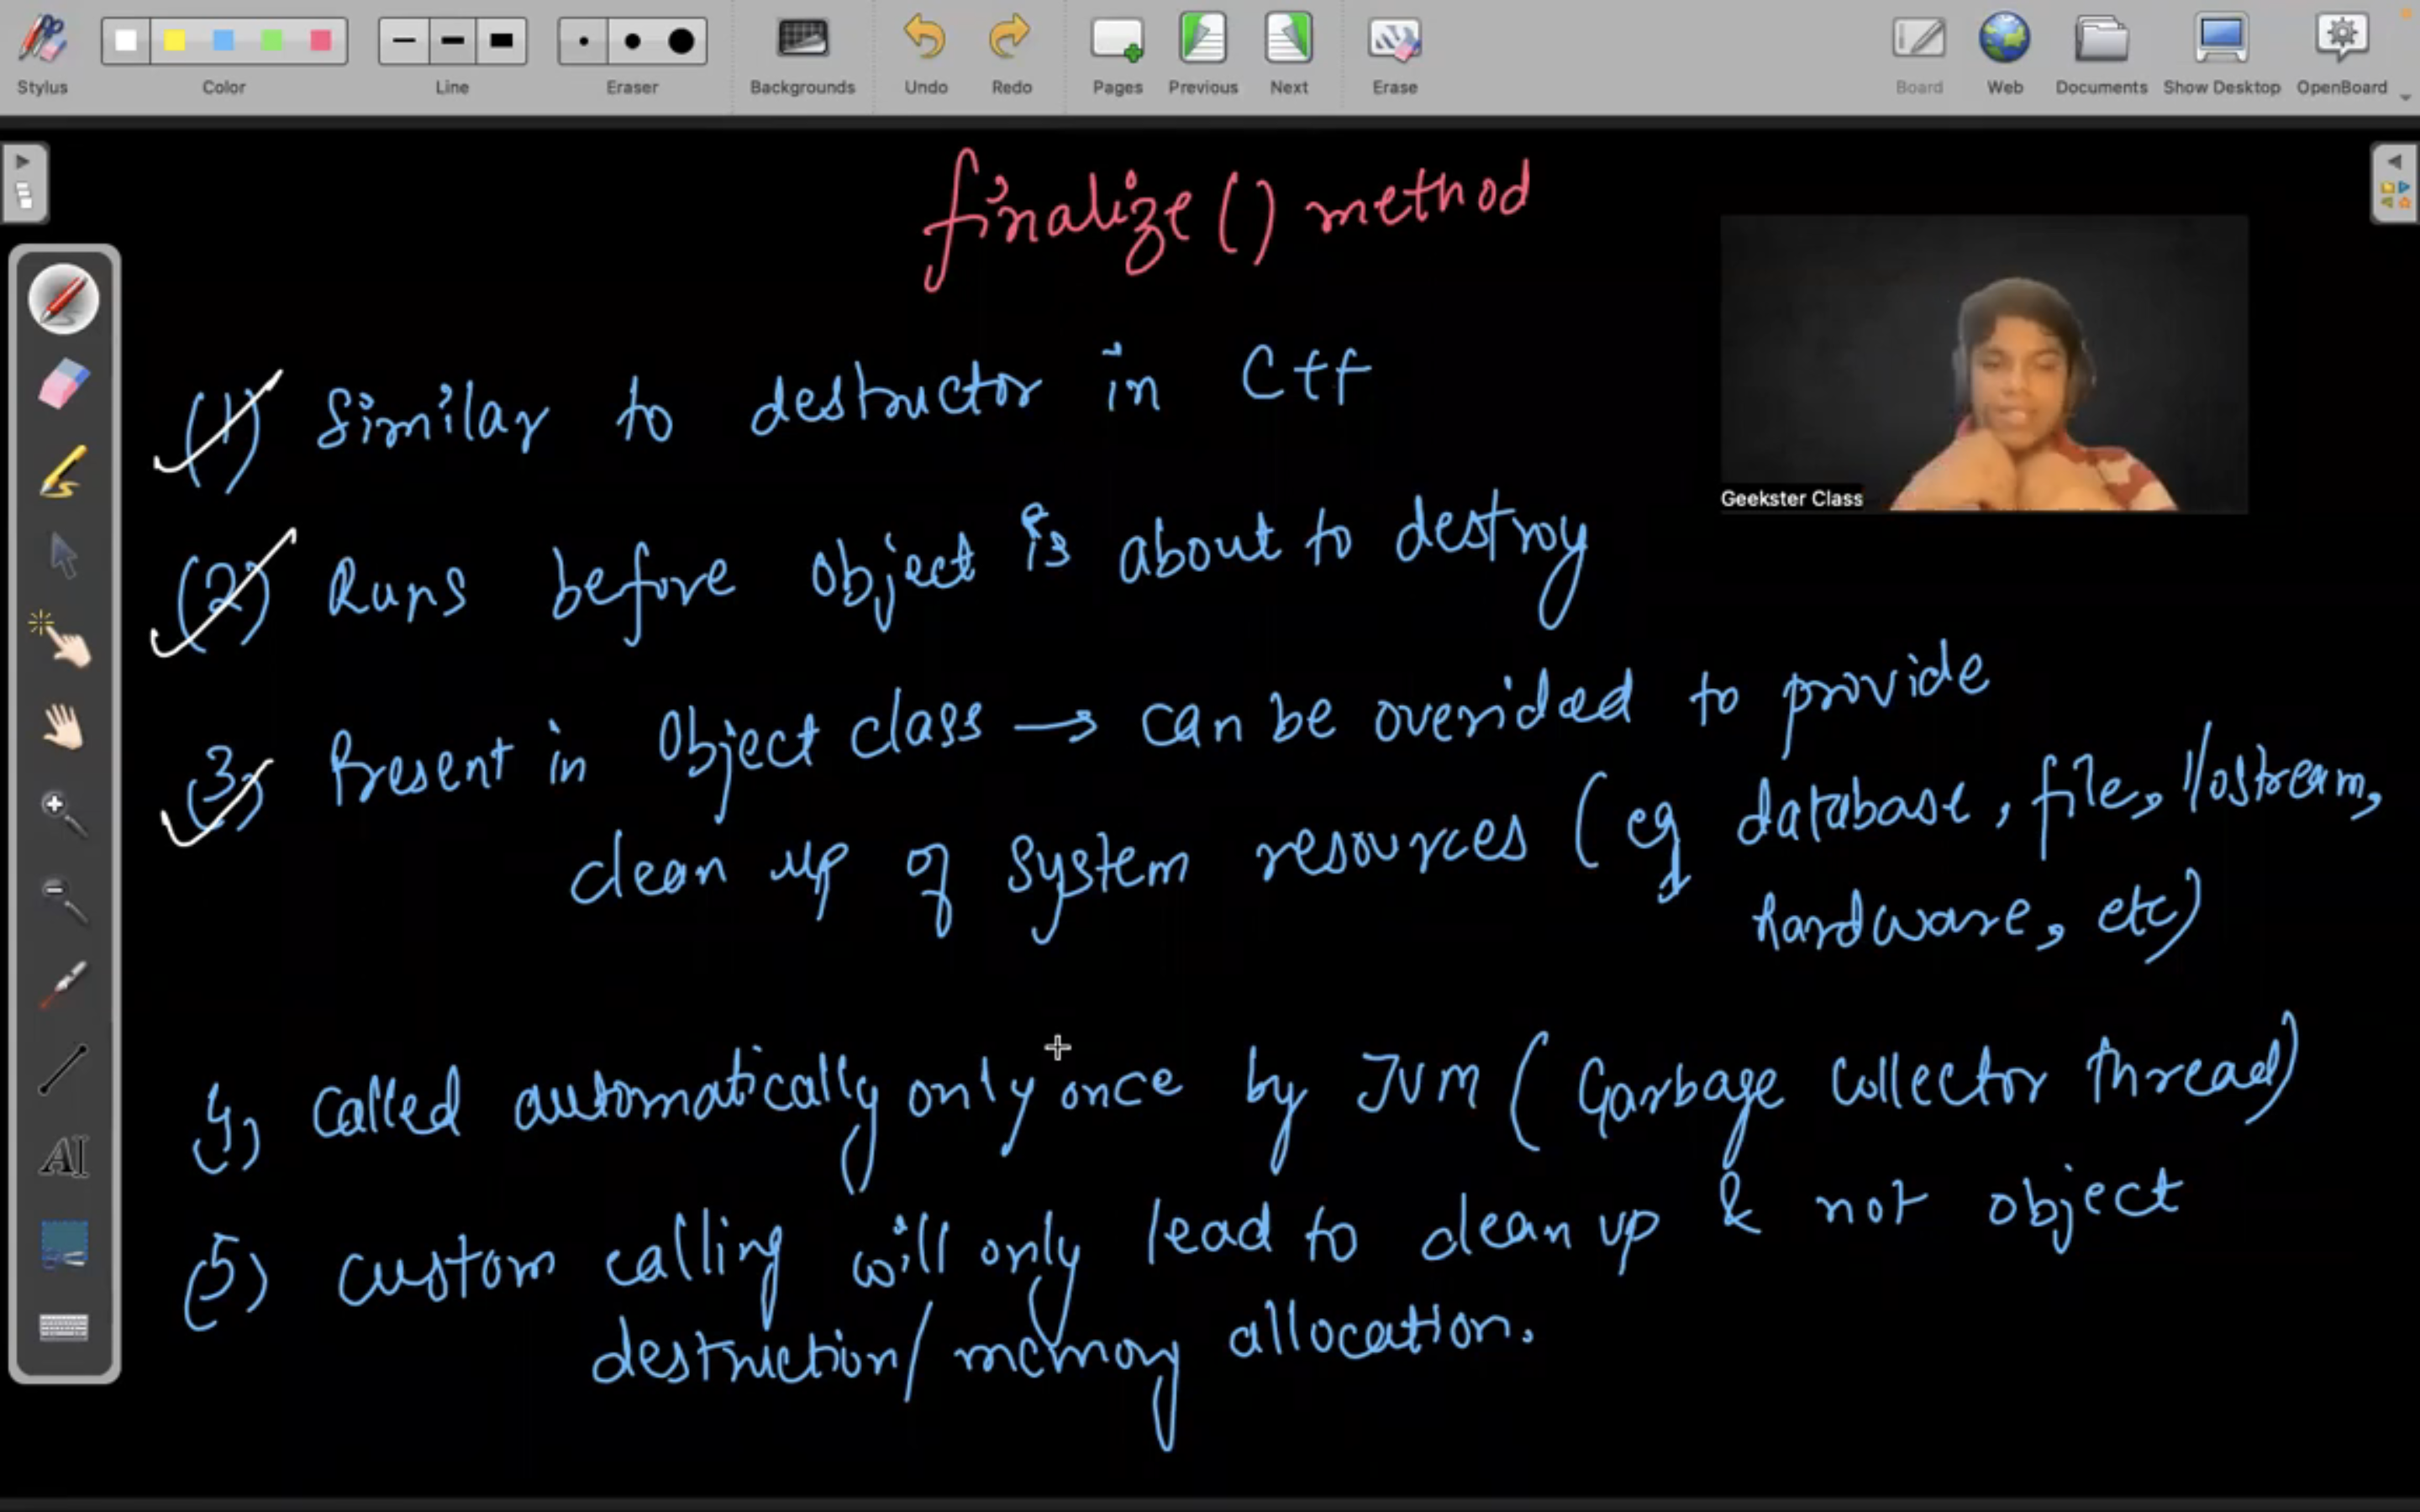 Stylus Color Line Eraser Backgrounds Undo Redo Pages Previous Next Erase Board Web Documents Show Desktop OpenBoard
finalize() method
Geekster Class
(1) Similar to destructor in C++
(2) Runs before object is about to destroy
(3) Present in Object class → can be overided to provide
clean up of system resources (eg database, file, I/ostream,
hardware, etc)
4) Called automatically only once by JVM (Garbage Collector thread)
(5) custom calling will only lead to clean up & not object
destruction/memory allocation.
AI